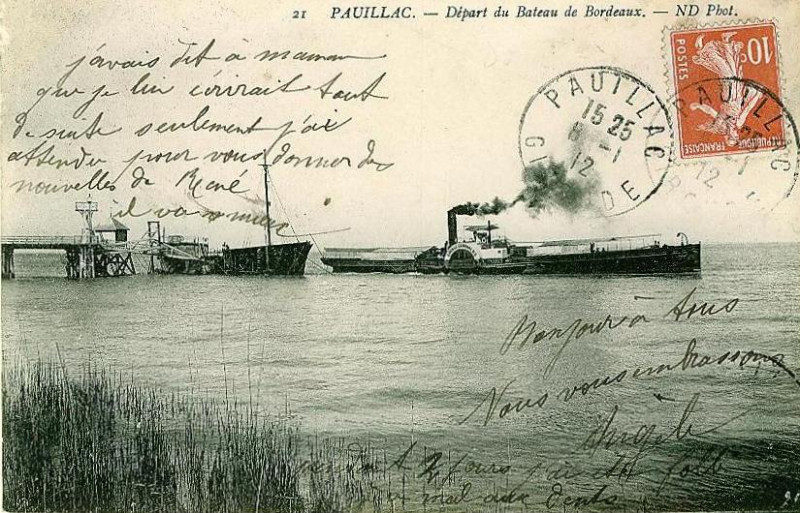 21 PAUILLAC. — Départ du Bateau de Bordeaux. — ND Phot.
j'avais dit à maman
que je lui écrirait tout
de suite seulement j'ai
attendu pour vous donner des
nouvelles de René
il va mieux
PAUILLAC
15 25
12
GIRONDE
10c
POSTES
REPUBLIQUE FRANÇAISE
PAUILLAC
15 25
12
Bonjour à tous
Nous vous embrassons
Angèle
pendant 2 jours j'ai été folle
du mal aux dents